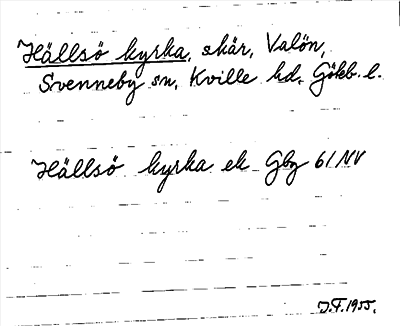 Hällsö kyrka, skär, Valön,
Svenneby sn, Kville hd, Götb. l.
Hällsö kyrka ek Gbg 61 NV
J.F. 1955.